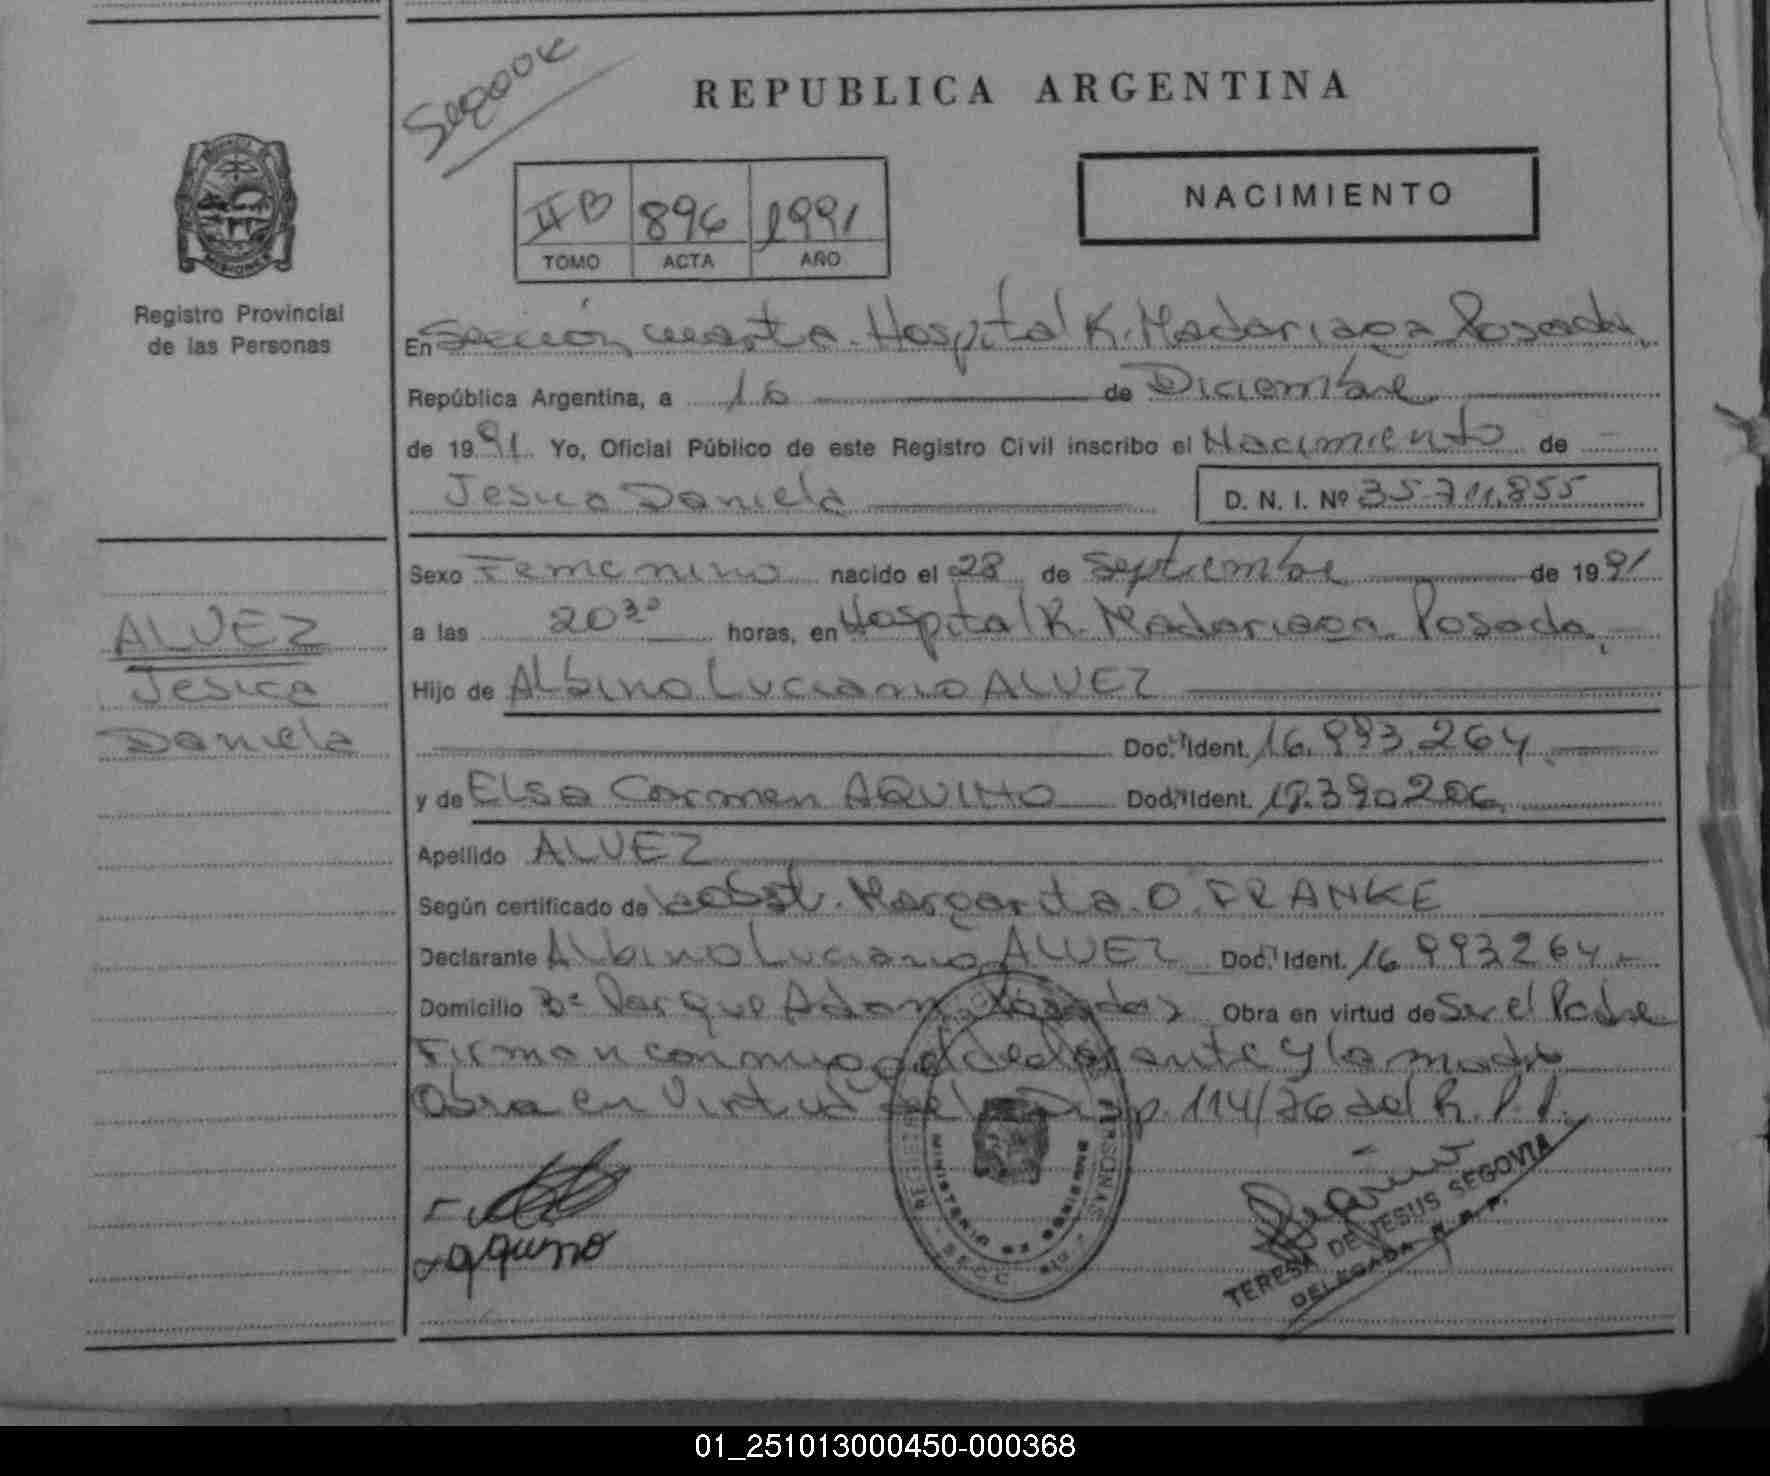 REPUBLICA ARGENTINA
NACIMIENTO
II B 896 1991
TOMO ACTA AÑO
MISIONES
Registro Provincial
de las Personas
En Sección cuarta. Hospital R. Madariaga Posadas,
República Argentina, a 16 de Diciembre
de 1991. Yo, Oficial Público de este Registro Civil inscribo el Nacimiento de
Jesica Daniela D. N. I. Nº 35.711.855
Sexo Femenino nacido el 28 de Septiembre de 1991
a las 20³⁰ horas, en Hospital R. Madariaga Posadas,
ALVEZ
Jesica
Daniela
Hijo de Albino Luciano ALVEZ
Doc. Ident. 16.993.264
y de Elsa Carmen AQUINO Doc. Ident. 18.390.206
Apellido ALVEZ
Según certificado de la obst. Margarita O. FRANKE
Declarante Albino Luciano ALVEZ Doc. Ident. 16.993.264
Domicilio Bº Parque Adam Posadas Obra en virtud de Ser el Padre
Firman conmigo el declarante y la madre
Obra en Virtud de la Disp. 114/76 del R. P. P.
MINISTERIO DE GOBIERNO
Aquino
TERESA DE JESUS SEGOVIA
DELEGADA R. P. P.
01_251013000450-000368